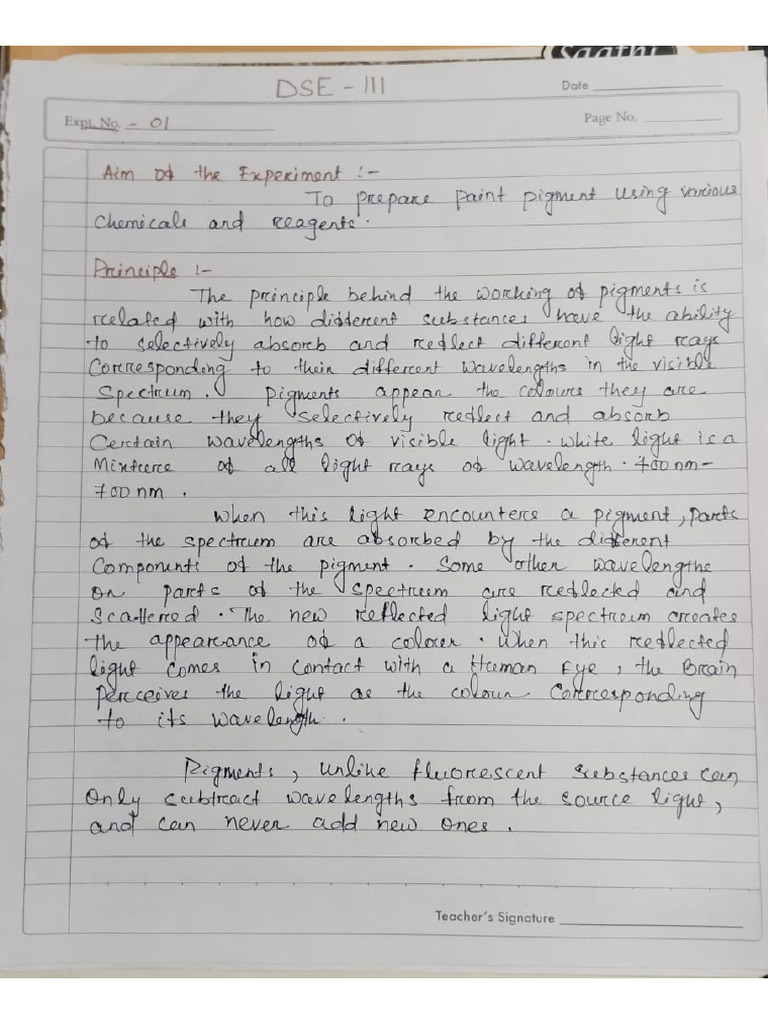 Saathi
DSE - III
Date
Expt. No. - 01
Page No.
Aim of the Experiment :-
To prepare paint pigment using various
Chemicals and reagents.
Principle :-
The principle behind the working of pigments is
related with how different substances have the ability
to selectively absorb and reflect different light rays
Corresponding to their different wavelengths in the visible
Spectrum. pigments appear the colours they are
because they selectively reflect and absorb
Certain wavelengths of visible light. White light is a
Mixture of all light rays of wavelength. 400 nm-
700 nm.
When this light encounters a pigment, parts
of the spectrum are absorbed by the different
Components of the pigment. Some other wavelengths
or parts of the spectrum are reflected and
Scattered. The new reflected light spectrum creates
the appearance of a colour. When this reflected
light comes in contact with a Human Eye, the Brain
perceives the light as the colour Corresponding
to its wavelength.
Pigments, unlike fluorescent substances can
Only subtract wavelengths from the source light,
and can never add new ones.
Teacher's Signature